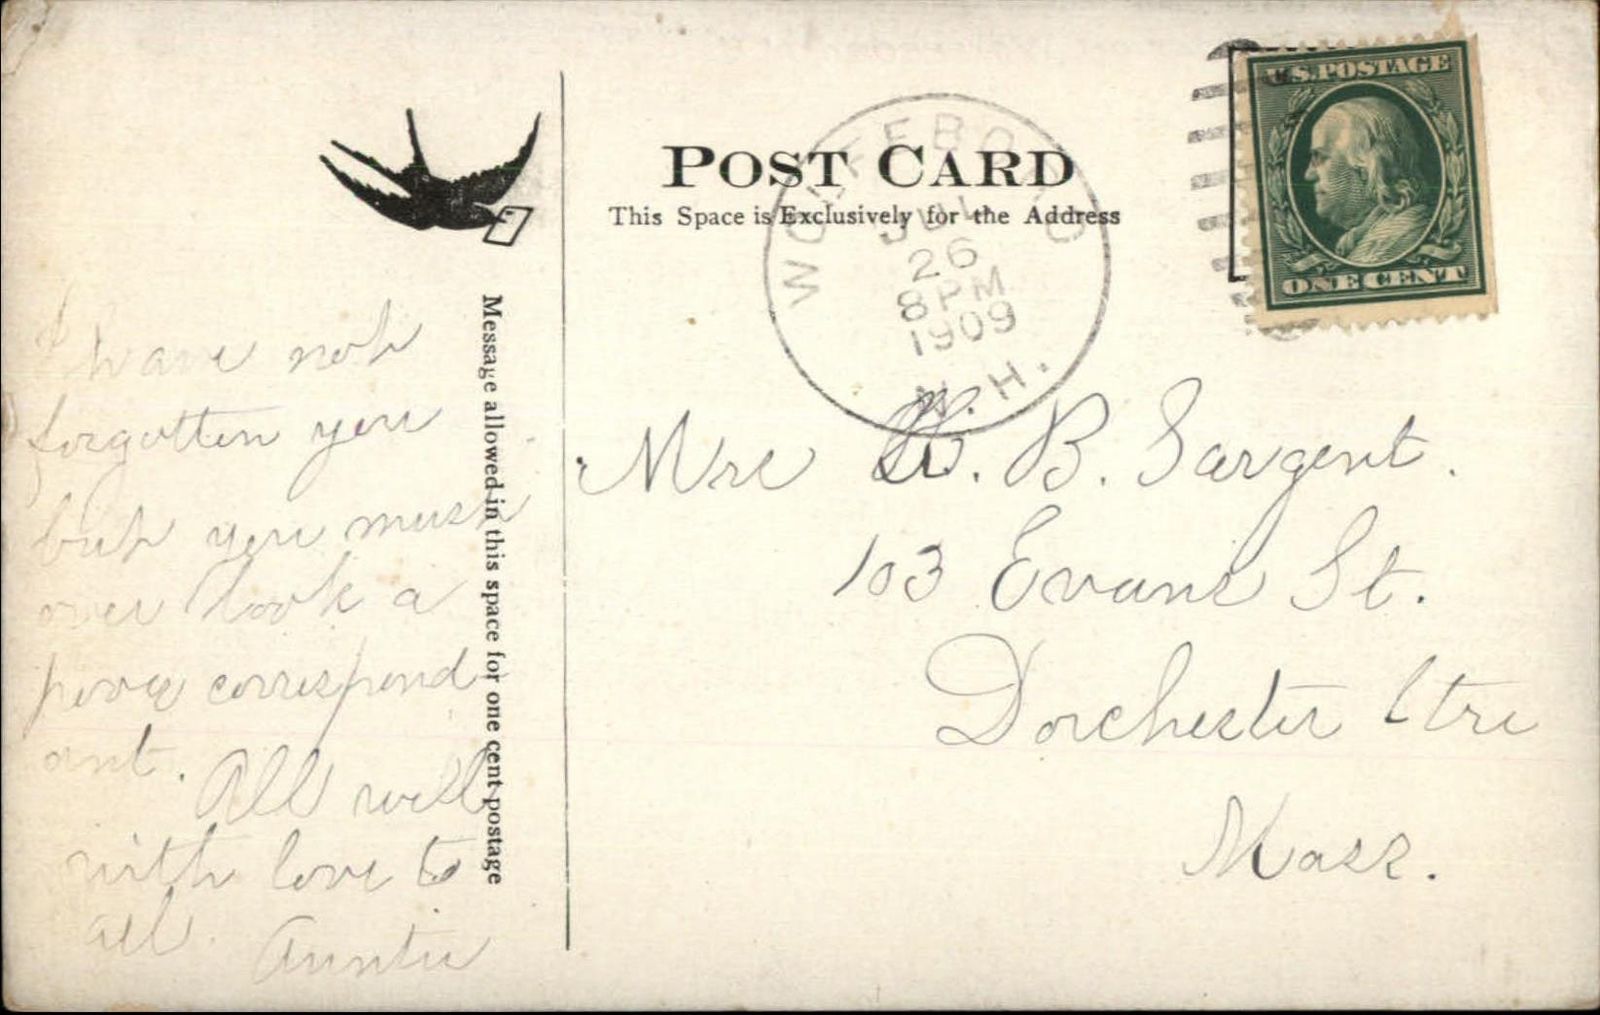 POST CARD
This Space is Exclusively for the Address
WOLFEBORO
JUL
26
8 PM
1909
N.H.
U.S. POSTAGE
ONE CENT
Message allowed in this space for one cent postage
I have not
forgotten you
but you must
over look a
poor correspond
ant. All well
with love to
all. Auntie
Mrs W. B. Sargent.
103 Evans St.
Dorchester Ctre
Mass.